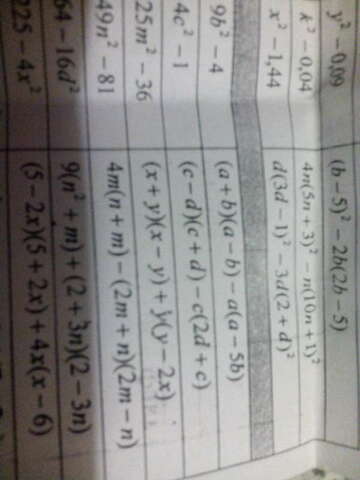 y² − 0,09 (b − 5)² − 2b(2b − 5)
k² − 0,04 4n(5n + 3)² − n(10n + 1)²
x² − 1,44 d(3d − 1)² − 3d(2 + d)²
9b² − 4 (a + b)(a − b) − a(a − 5b)
4c² − 1 (c − d)(c + d) − c(2d + c)
25m² − 36 (x + y)(x − y) + y(y − 2x)
49n² − 81 4m(n + m) − (2m + n)(2m − n)
64 − 16d² 9(n² + m) + (2 + 3n)(2 − 3n)
225 − 4x² (5 − 2x)(5 + 2x) + 4x(x − 6)